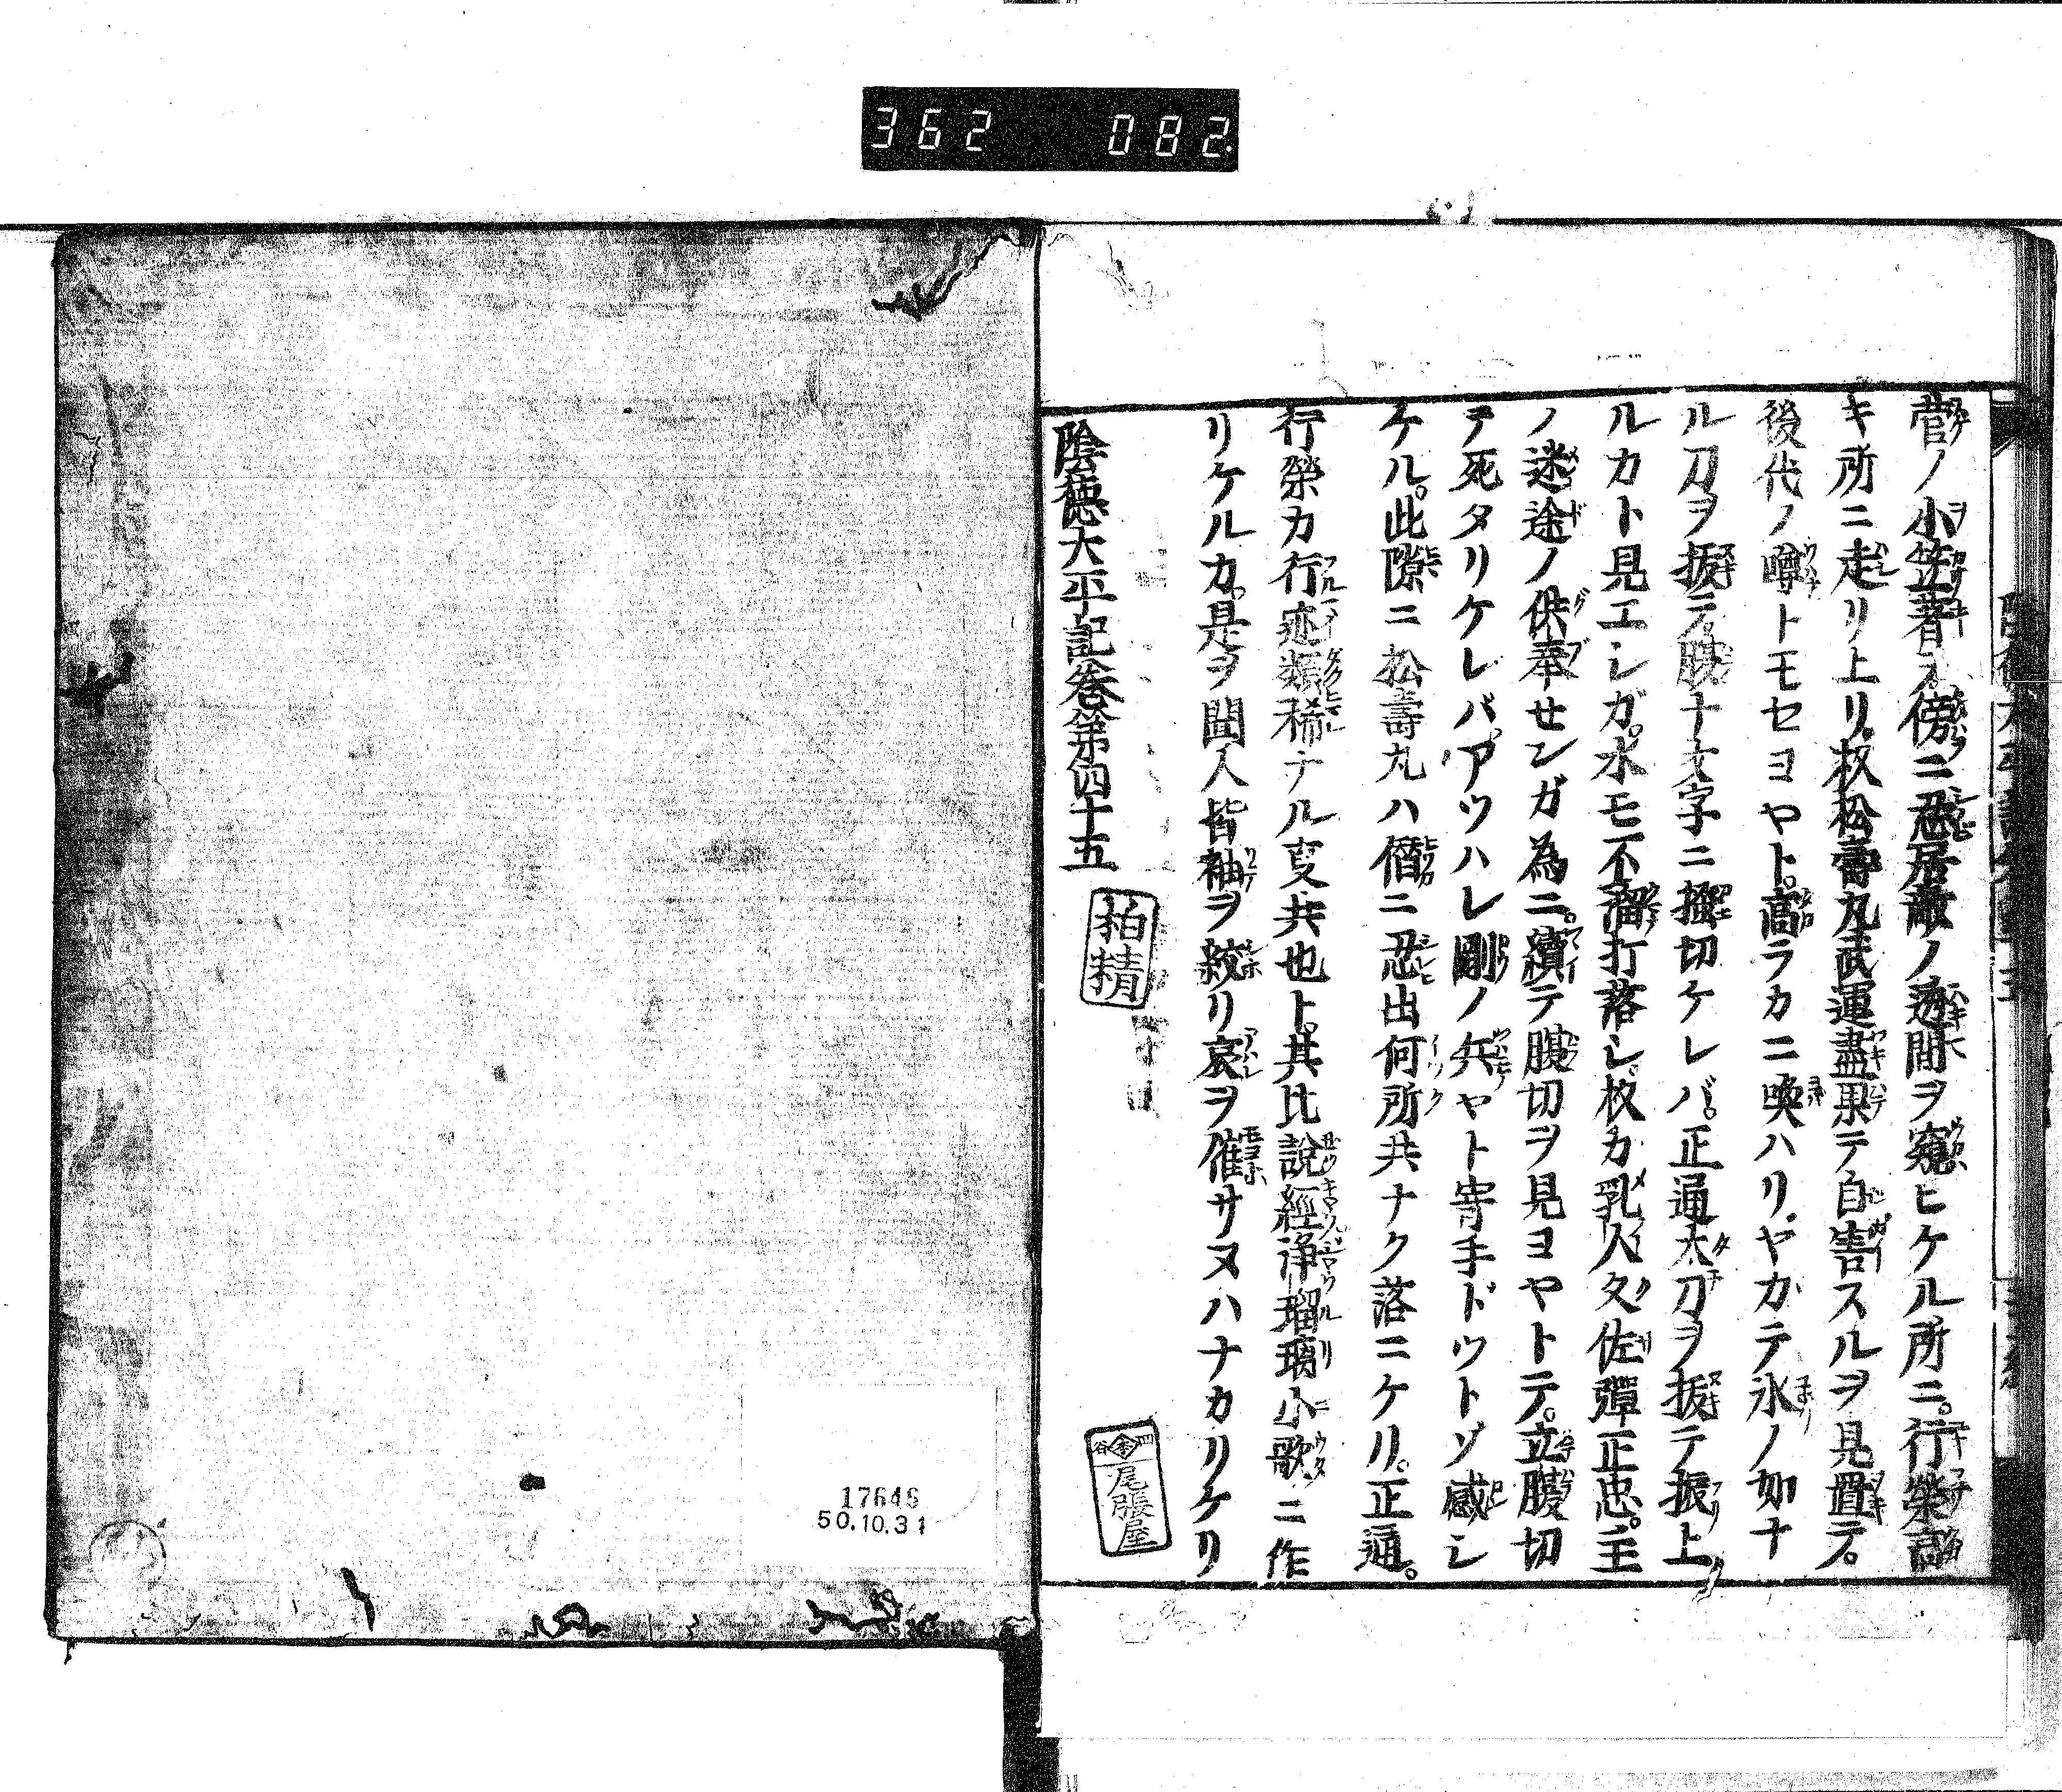 362 082
菅ノ小笠著ス傍ニ忍居敵ノ透間ヲ窺ヒケル所ニ。行榮高
キ所ニ走リ上リ。枚松壽丸武運盡果テ自害スルヲ見置テ。
後代ノ噂トモセヨヤト。高ラカニ喚ハリ。ヤカテ氷ノ如ナ
ル刀ヲ抜テ。腹十文字ニ掻切ケレバ。正通太刀ヲ抜テ振上
ルカト見エシガ。水モ不溜打落シ。枚カ乳人夂佐彈正忠。主
ノ迷途ノ供奉セシガ為ニ。續テ腹切ヲ見ヨヤトテ。立腹切
テ死タリケレバ。アツハレ剛ノ兵ヤト寄手ドツトゾ感シ
ケル。此隙ニ松壽丸ハ僭ニ忍出何所共ナク落ニケリ。正通。
行榮カ行迹類稀ナル叓共也ト。其比説經浄瑠璃小歌ニ作
リケルカ。是ヲ聞人皆袖ヲ絞リ哀ヲ催サヌハナカリケリ
陰徳太平記卷第四十五
柏精
尾張屋
17646
50.10.31